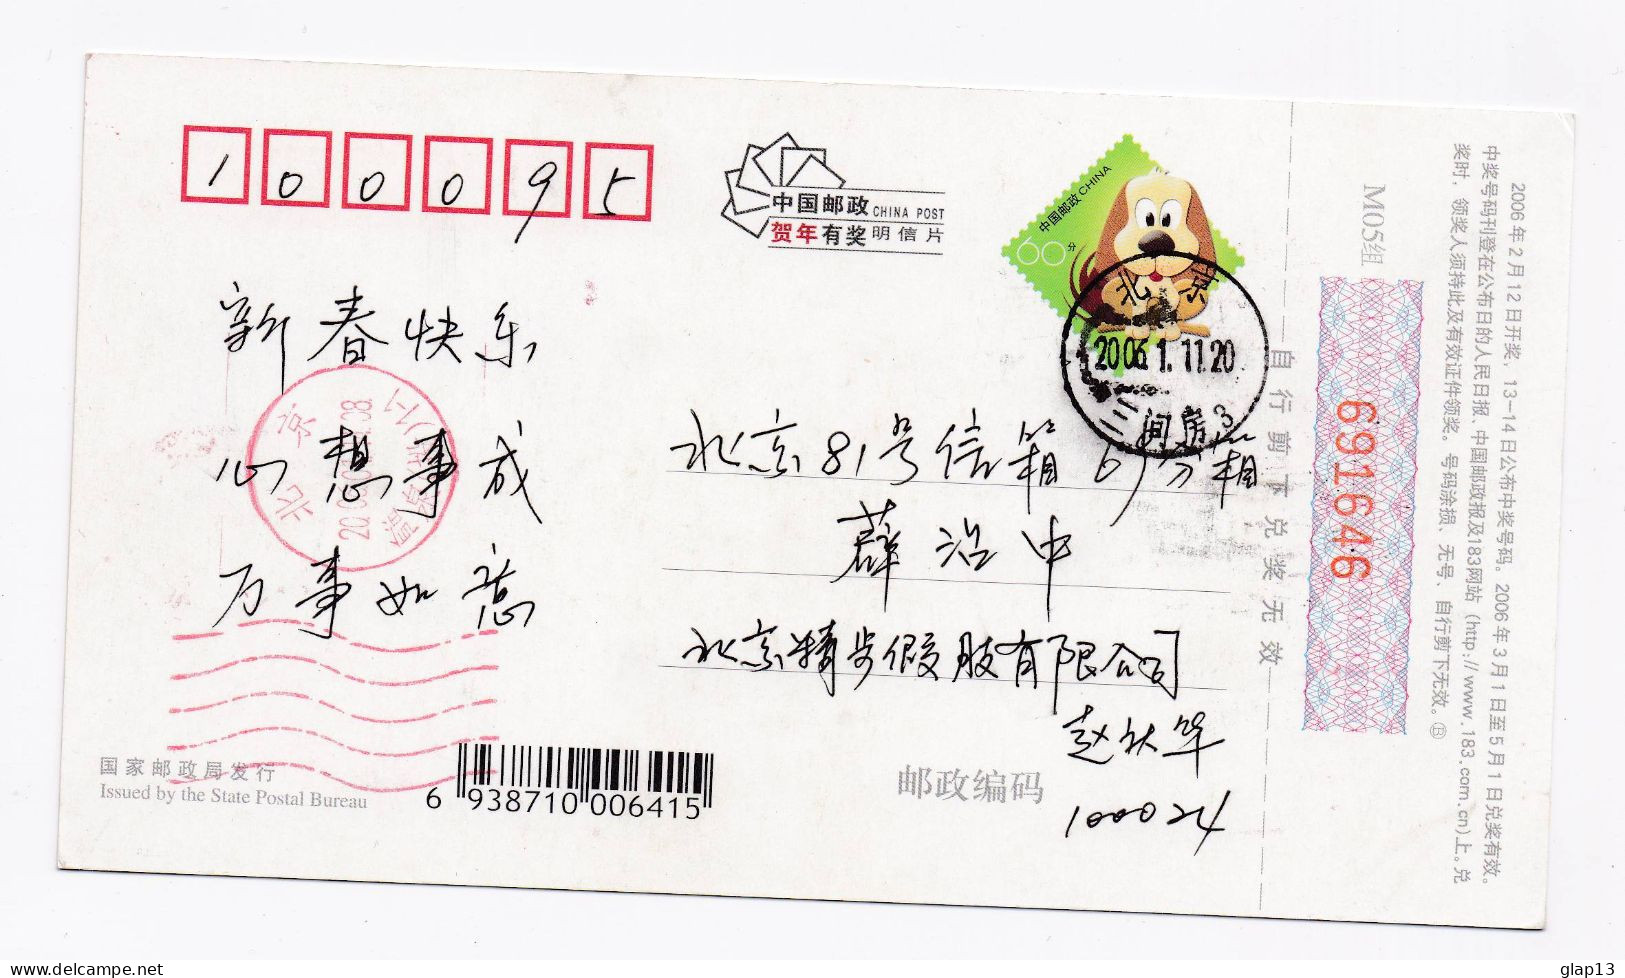 100095
中国邮政 CHINA POST
贺年有奖明信片
中国邮政CHINA
60分
北京
2006.1.11.20
三间房3
新春快乐
心想事成
万事如意
北京
北京81号信箱61分箱
薛治中
北京精步假肢有限公司
赵秋华
邮政编码
100024
国家邮政局发行
Issued by the State Postal Bureau
6 938710 006415
自行剪下兑奖无效
M05组
691646
2006年2月12日开奖，13-14日公布中奖号码。2006年3月1日至5月1日兑奖有效。
中奖号码刊登在公布日的人民日报、中国邮政报及183网站（http://www.183.com.cn)上。兑
奖时，领奖人须持此及有效证件领奖。号码涂损、无号、自行剪下无效。
glap13